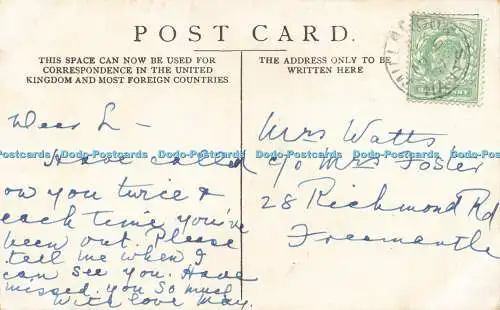 POST CARD.
THIS SPACE CAN NOW BE USED FOR
CORRESPONDENCE IN THE UNITED
KINGDOM AND MOST FOREIGN COUNTRIES
THE ADDRESS ONLY TO BE
WRITTEN HERE
Dear L -
Have called
on you twice &
each time you've
been out. Please
tell me when I
can see you. Have
missed you so much
With love May.
Mrs Watts
c/o Mrs Foster
28 Richmond Rd
Freemantle
Dodo-Postcards Dodo-Postcards Dodo-Postcards Dodo-Postcards